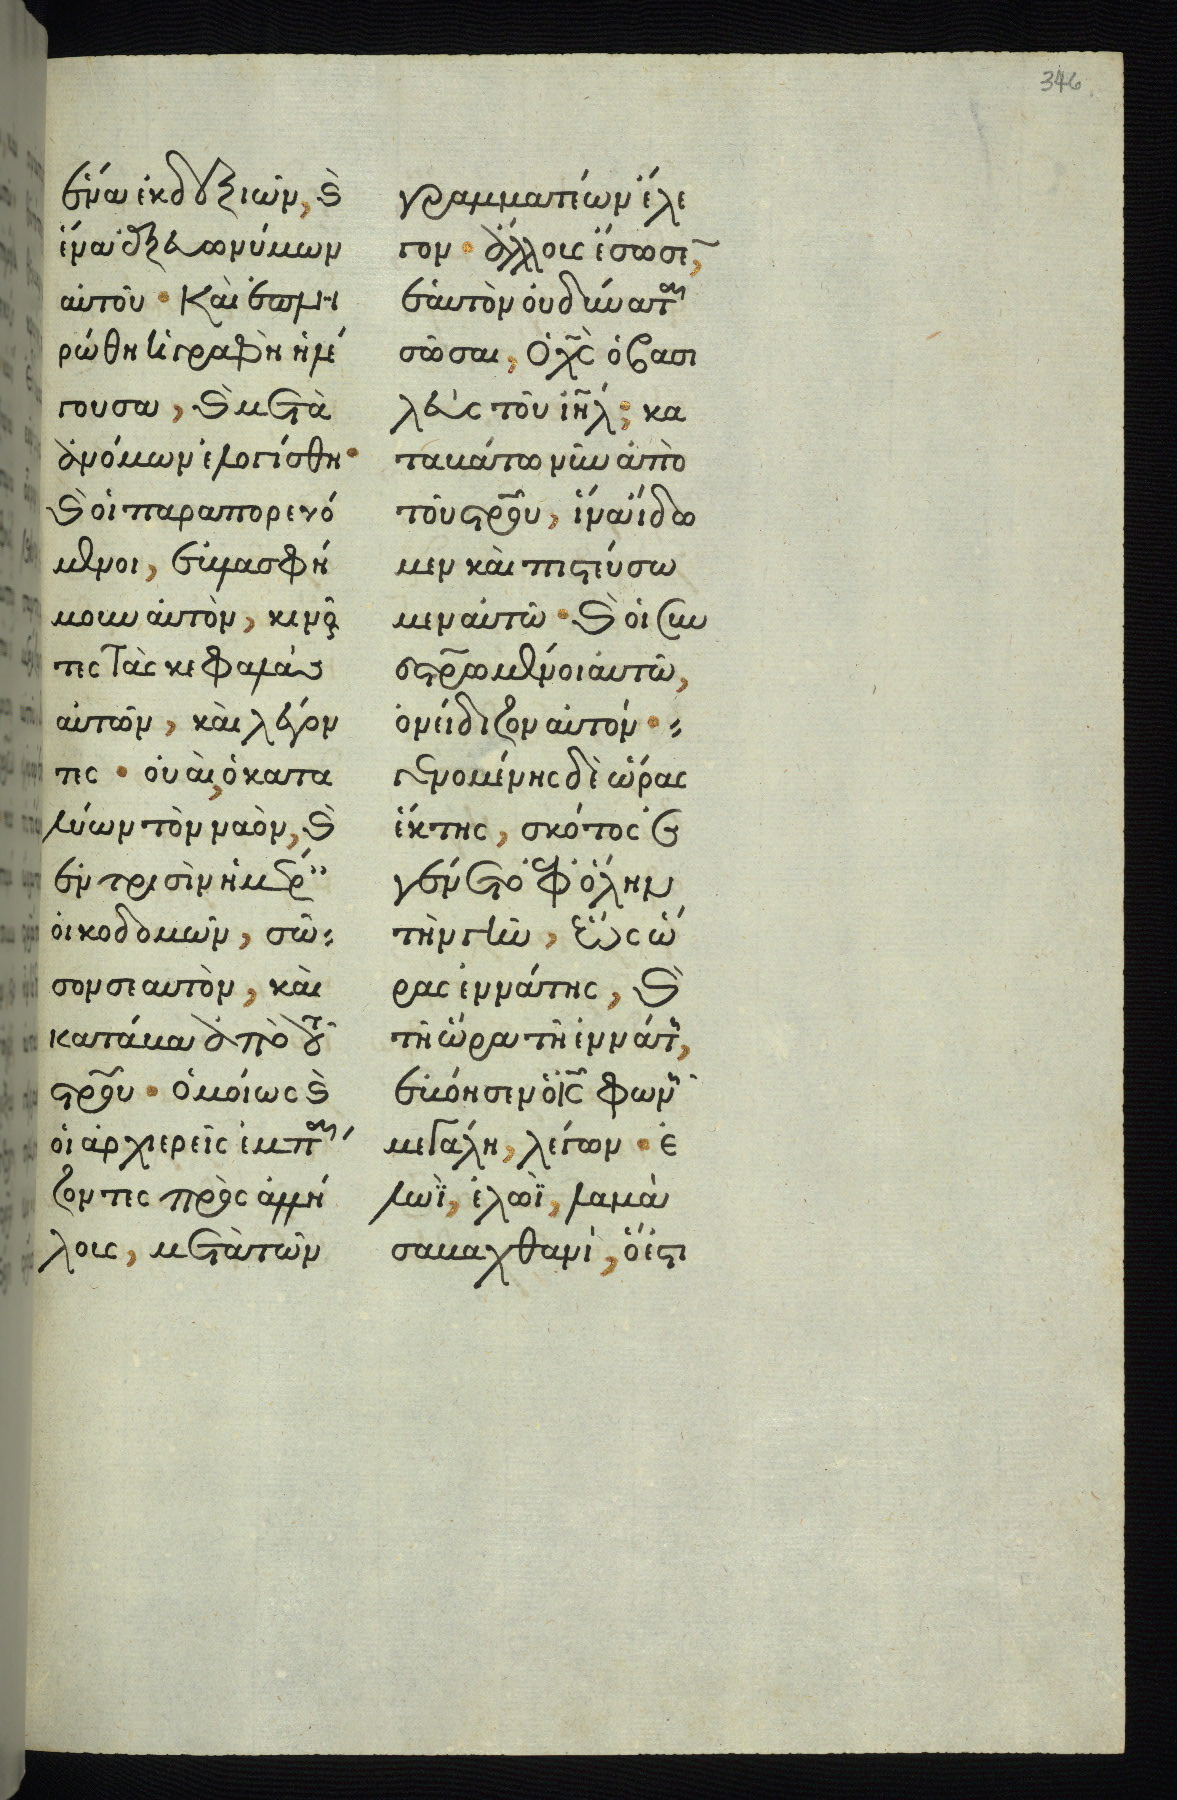 346
ἕνα ἐκ δεξιῶν, καὶ
ἕνα ἐξ εὐωνύμων
αὐτοῦ · Καὶ ἐπλη
ρώθη ἡ γραφὴ ἡ λέ
γουσα, καὶ μετὰ
ἀνόμων ἐλογίσθη ·
καὶ οἱ παραπορευό
μενοι, ἐβλασφή
μουν αὐτὸν, κινοῦ
τες τὰς κεφαλὰς
αὐτῶν, καὶ λέγον
τες · οὐαὶ, ὁ κατα
λύων τὸν ναὸν, καὶ
ἐν τρισὶν ἡμέραις
οἰκοδομῶν, σῶ
σον σεαυτὸν, καὶ
κατάβα ἀπὸ τοῦ
στρου · Ὁμοίως καὶ
οἱ ἀρχιερεῖς ἐμπαί
ζοντες πρὸς ἀλλή
λους, μετὰ τῶν
γραμματέων ἔλε
γον · ἄλλους ἔσωσε,
ἑαυτὸν οὐ δύναται
σῶσαι, Ὁ χς ὁ βασι
λεὺς τοῦ ιηλ, κα
ταβάτω νῦν ἀπὸ
τοῦ στρου, ἵνα ἴδω
μεν καὶ πιστεύσω
μεν αὐτῶ · καὶ οἱ συν
εστρωμένοι αὐτῶ,
ὠνείδιζον αὐτόν ·
γενομένης δὲ ὥρας
ἕκτης, σκότος ἐ
γένετο ἐφ ὅλην
τὴν γῆν, ἕως ὥ
ρας ἐννάτης, καὶ
τῆ ὥρα τῆ ἐννάτη,
ἐβόησεν ὁ ις φωνῆ
μεγάλη, λέγων · ἐ
λωῒ, ἐλωῒ, λαμὰ
σαβαχθανί, ὅ ἐστι